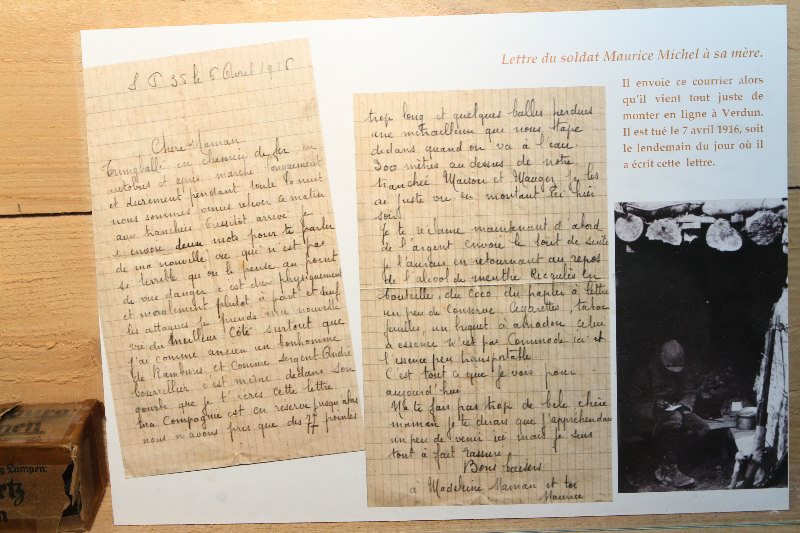 Lettre du soldat Maurice Michel à sa mère.
Il envoie ce courrier alors
qu'il vient tout juste de
monter en ligne à Verdun.
Il est tué le 7 avril 1916, soit
le lendemain du jour où il
a écrit cette lettre.
S P 35 le 6 Avril 1916
Chère Maman
en chemin de fer en
autobus et après marche longuement
et durement pendant toute la nuit
nous sommes venus relever ce matin
aux tranchées arrivé je
t envoie deux mots pour te parler
de ma nouvelle vie qui n'est pas
si terrible qu on le pense au point
de vue danger c est dur physiquement
et moralement plutot à part et sauf
les attaques je prends ma nouvelle
vie du meilleur côté surtout que
j'ai comme ancien un bonhomme
de Rambures et comme sergent André
bourrellier c est même dedans son
que je t' ecris cette lettre
ma Compagnie est en reserve jusqu alors
nous n avons pris que des 77 pointes
trop long et quelques balles perdues
une mitrailleuse que nous tape
dedans quand on va à l'eau.
300 mètres au dessus de notre
tranchée Maison et Mauger je les
ai juste vu en montant ici hier
soir
Je te réclame maintenant d abord
de l'argent envoie le tout de suite
je l'aurai en retournant au repos
de l'alcool de menthe Ricqulès en
bouteille, du coco du papier à lettre
un peu de conserve, cigarettes, tabac
feuilles, un briquet à amadou celui
à essence n'est pas commode ici et
l'essence peu transportable
C'est tout ce que je vois pour
aujourd'hui
Ne te fais pas trop de bile chère
maman je te dirais que j'appréhendais
un peu de venir ici mais je suis
tout à fait rassuré
Bons baisers
à Madeleine Maman et toi
Maurice
Lampen